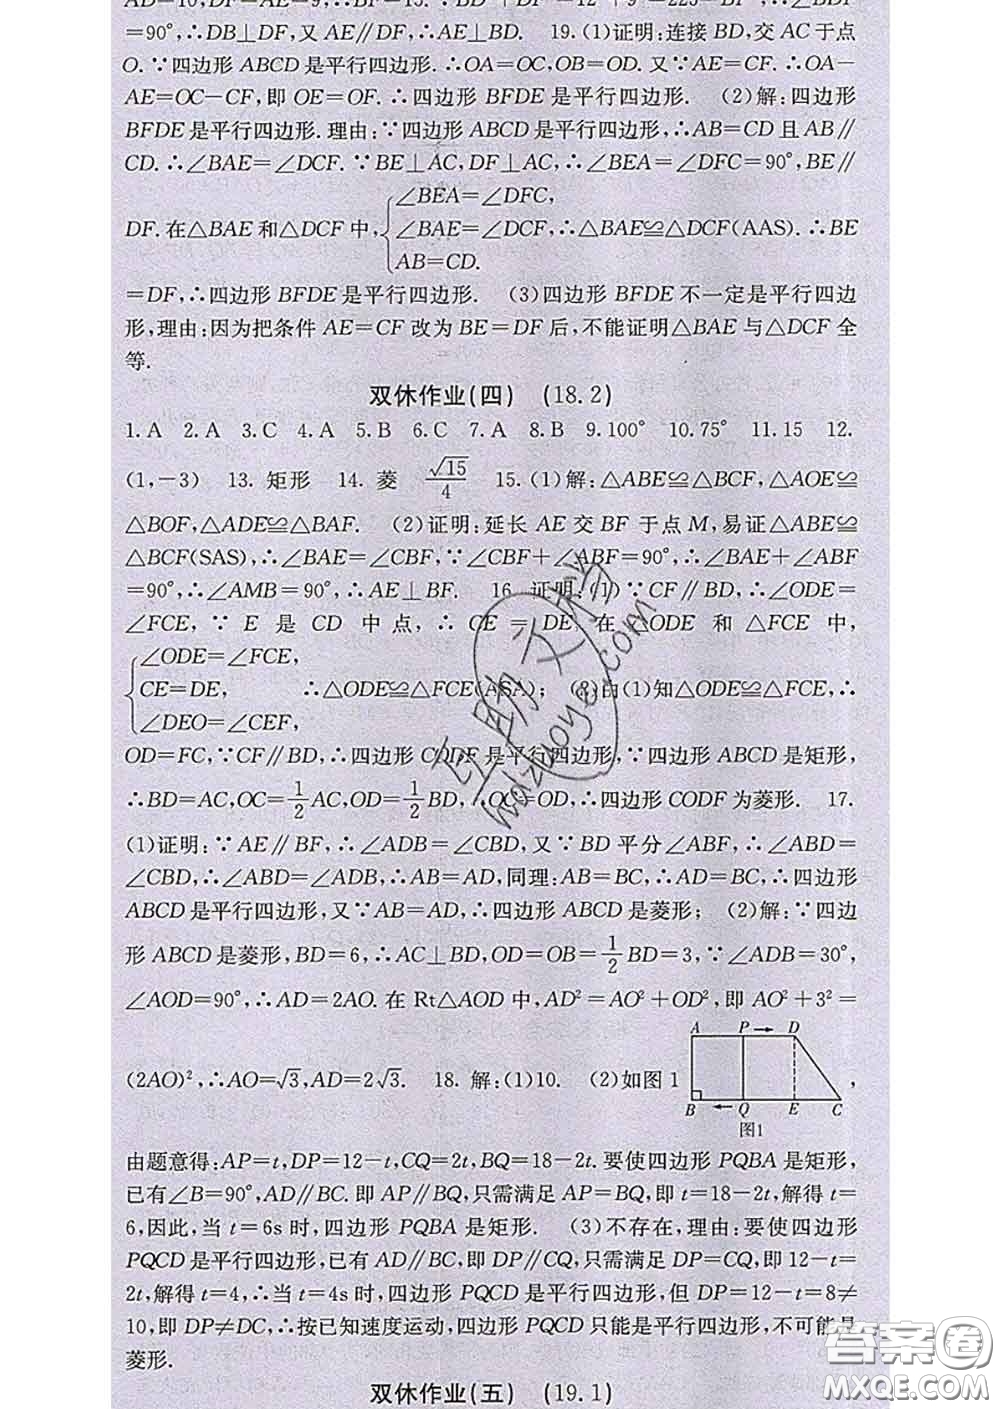 AD=10,DF=AE=9,∴BF=15.∵BD²=12²+9²=225=BF²,∴∠BDF
=90°,∴DB⊥DF,又AE∥DF,∴AE⊥BD. 19.(1)证明:连接BD,交AC于点
O.∵四边形ABCD是平行四边形.∴OA=OC,OB=OD.又∵AE=CF.∴OA-
AE=OC-CF,即OE=OF.∴四边形BFDE是平行四边形. (2)解:四边形
BFDE是平行四边形.理由:∵四边形ABCD是平行四边形,∴AB=CD且AB∥
CD.∴∠BAE=∠DCF.∵BE⊥AC,DF⊥AC,∴∠BEA=∠DFC=90°,BE∥
∠BEA=∠DFC,
DF.在△BAE和△DCF中,∠BAE=∠DCF,∴△BAE≌△DCF(AAS).∴BE
AB=CD.
=DF,∴四边形BFDE是平行四边形. (3)四边形BFDE不一定是平行四边
形,理由:因为把条件AE=CF改为BE=DF后,不能证明△BAE与△DCF全
等.
双休作业(四) (18.2)
1.A 2.A 3.C 4.A 5.B 6.C 7.A 8.B 9.100° 10.75° 11.15 12.
(1,-3) 13.矩形 14.菱 √15/4 15.(1)解:△ABE≌△BCF,△AOE≌
△BOF,△ADE≌△BAF. (2)证明:延长AE交BF于点M,易证△ABE≌
△BCF(SAS),∴∠BAE=∠CBF,∵∠CBF+∠ABF=90°,∴∠BAE+∠ABF
=90°,∴∠AMB=90°,∴AE⊥BF. 16.证明:(1)∵CF∥BD,∴∠ODE=
∠FCE,∵E是CD中点,∴CE=DE,在△ODE和△FCE中,
∠ODE=∠FCE,
CE=DE, ∴△ODE≌△FCE(ASA); (2)由(1)知△ODE≌△FCE,∴
∠DEO=∠CEF,
OD=FC,∵CF∥BD,∴四边形CODF是平行四边形,∵四边形ABCD是矩形,
∴BD=AC,OC=1/2AC,OD=1/2BD,∴OC=OD,∴四边形CODF为菱形. 17.
(1)证明:∵AE∥BF,∴∠ADB=∠CBD,又∵BD平分∠ABF,∴∠ABD=
∠CBD,∴∠ABD=∠ADB,∴AB=AD,同理:AB=BC,∴AD=BC,∴四边形
ABCD是平行四边形,又∵AB=AD,∴四边形ABCD是菱形; (2)解:∵四边
形ABCD是菱形,BD=6,∴AC⊥BD,OD=OB=1/2BD=3,∵∠ADB=30°,
∠AOD=90°,∴AD=2AO.在Rt△AOD中,AD²=AO²+OD²,即AO²+3²=
(2AO)²,∴AO=√3,AD=2√3. 18.解:(1)10. (2)如图1 ,
A P D
B Q E C
图1
由题意得:AP=t,DP=12-t,CQ=2t,BQ=18-2t.要使四边形PQBA是矩形,
已有∠B=90°,AD∥BC.即AP∥BQ,只需满足AP=BQ,即t=18-2t,解得t=
6,因此,当t=6s时,四边形PQBA是矩形. (3)不存在,理由:要使四边形
PQCD是平行四边形,已有AD∥BC,即DP∥CQ,只需满足DP=CQ,即12-t=
2t,解得t=4,∴当t=4s时,四边形PQCD是平行四边形,但DP=12-t=8≠
10,即DP≠DC,∴按已知速度运动,四边形PQCD只能是平行四边形,不可能是
菱形.
双休作业(五) (19.1)
互助文学
hdzuoye.com
答案圈
MXQE.COM